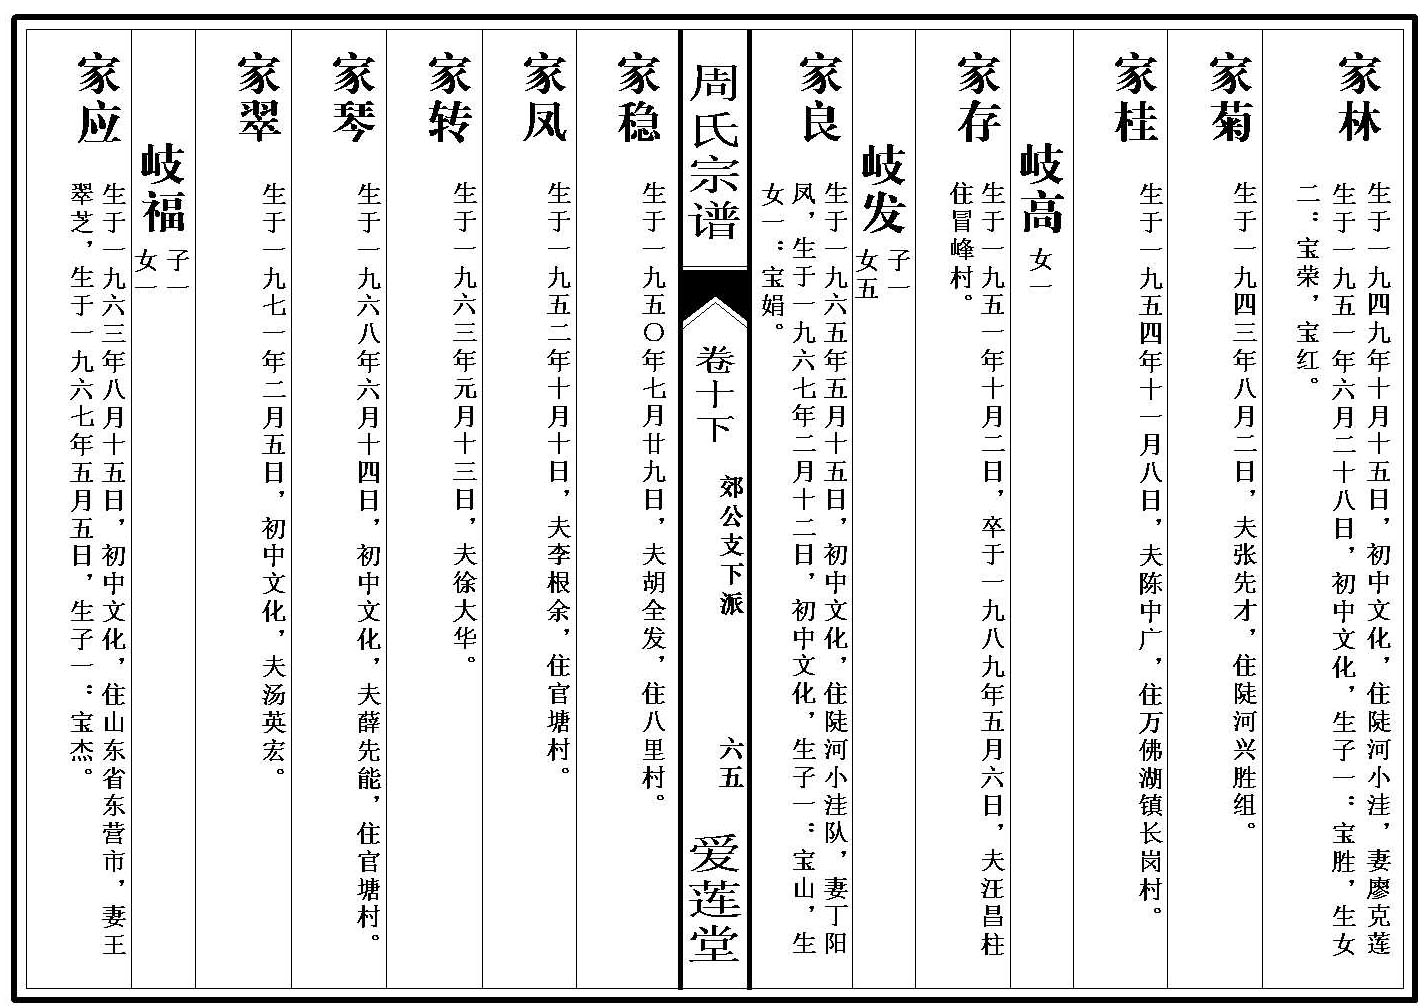 家林
生于一九四九年十月十五日，初中文化，住陡河小洼，妻廖克莲
生于一九五一年六月二十八日，初中文化，生子一：宝胜，生女
二：宝荣，宝红。
家菊
生于一九四三年八月二日，夫张先才，住陡河兴胜组。
家桂
生于一九五四年十一月八日，夫陈中广，住万佛湖镇长岗村。
岐高
女一
家存
生于一九五一年十月二日，卒于一九八九年五月六日，夫汪昌柱
住冒峰村。
岐发
子一
女五
家良
生于一九六五年五月十五日，初中文化，住陡河小洼队，妻丁阳
凤，生于一九六七年二月十二日，初中文化，生子一：宝山，生
女一：宝娟。
周氏宗谱
卷十下
郊公支下派
六五
爱莲堂
家稳
生于一九五〇年七月廿九日，夫胡全发，住八里村。
家凤
生于一九五二年十月十日，夫李根余，住官塘村。
家转
生于一九六三年元月十三日，夫徐大华。
家琴
生于一九六八年六月十四日，初中文化，夫薛先能，住官塘村。
家翠
生于一九七一年二月五日，初中文化，夫汤英宏。
岐福
子一
女一
家应
生于一九六三年八月十五日，初中文化，住山东省东营市，妻王
翠芝，生于一九六七年五月五日，生子一：宝杰。